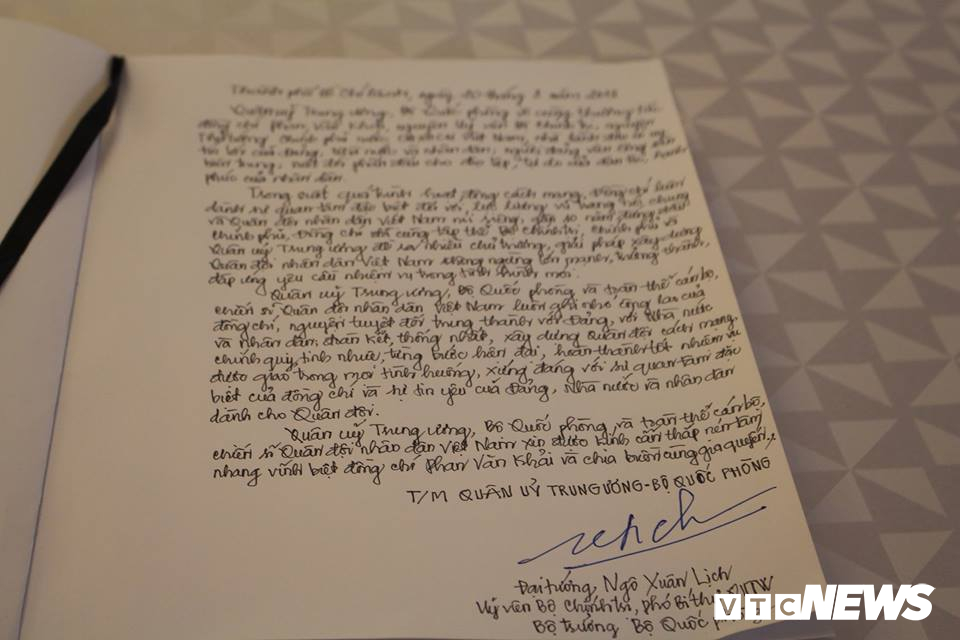 Thành phố Hồ Chí Minh, ngày 20 tháng 3 năm 2018
Quân uỷ Trung ương, Bộ Quốc phòng vô cùng thương tiếc
đồng chí Phan Văn Khải, nguyên Uỷ viên Bộ Chính trị, nguyên
Thủ tướng Chính phủ nước CHXHCN Việt Nam, nhà lãnh đạo có uy
tín lớn của Đảng, Nhà nước và nhân dân; người đảng viên cộng sản
kiên trung, suốt đời phấn đấu cho độc lập, tự do của dân tộc, hạnh
phúc của nhân dân.
Trong suốt quá trình hoạt động cách mạng, Đồng chí luôn
dành sự quan tâm đặc biệt đối với lực lượng vũ trang nói chung
và Quân đội nhân dân Việt Nam nói riêng, gần 10 năm đứng đầu
Chính phủ, Đồng chí đã cùng tập thể Bộ Chính trị, Chính phủ và
Quân uỷ Trung ương đề ra nhiều chủ trương, giải pháp xây dựng
Quân đội nhân dân Việt Nam không ngừng lớn mạnh, trưởng thành,
đáp ứng yêu cầu nhiệm vụ trong tình hình mới.
Quân uỷ Trung ương, Bộ Quốc phòng và toàn thể cán bộ,
chiến sĩ Quân đội nhân dân Việt Nam luôn ghi nhớ công lao của
đồng chí, nguyện tuyệt đối trung thành với Đảng, với Nhà nước
và nhân dân; đoàn kết, thống nhất, xây dựng Quân đội cách mạng,
chính quy, tinh nhuệ, từng bước hiện đại, hoàn thành tốt nhiệm vụ
được giao trong mọi tình huống, xứng đáng với sự quan tâm đặc
biệt của đồng chí và sự tin yêu của Đảng, Nhà nước và nhân dân
dành cho Quân đội.
Quân uỷ Trung ương, Bộ Quốc phòng và toàn thể cán bộ,
chiến sĩ Quân đội nhân dân Việt Nam xin được kính cẩn thắp nén tâm
nhang vĩnh biệt đồng chí Phan Văn Khải và chia buồn cùng gia quyến./.
T/M QUÂN UỶ TRUNG ƯƠNG - BỘ QUỐC PHÒNG
Đại tướng, Ngô Xuân Lịch
Uỷ viên Bộ Chính trị, phó Bí thư QUTW
Bộ trưởng Bộ Quốc phòng
VTC NEWS